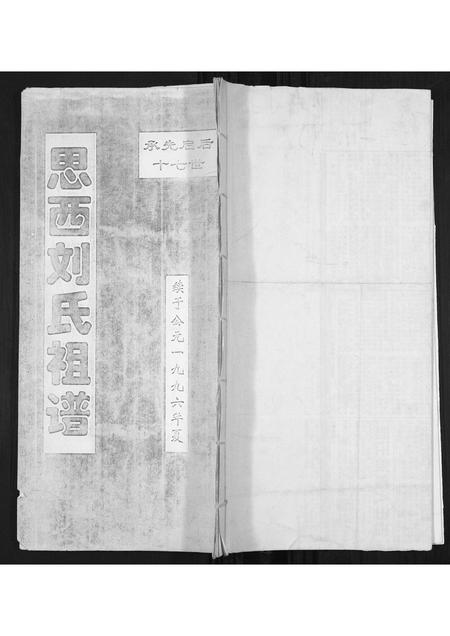 思西刘氏祖谱
承先启后
十七世
续于公元一九九六年夏